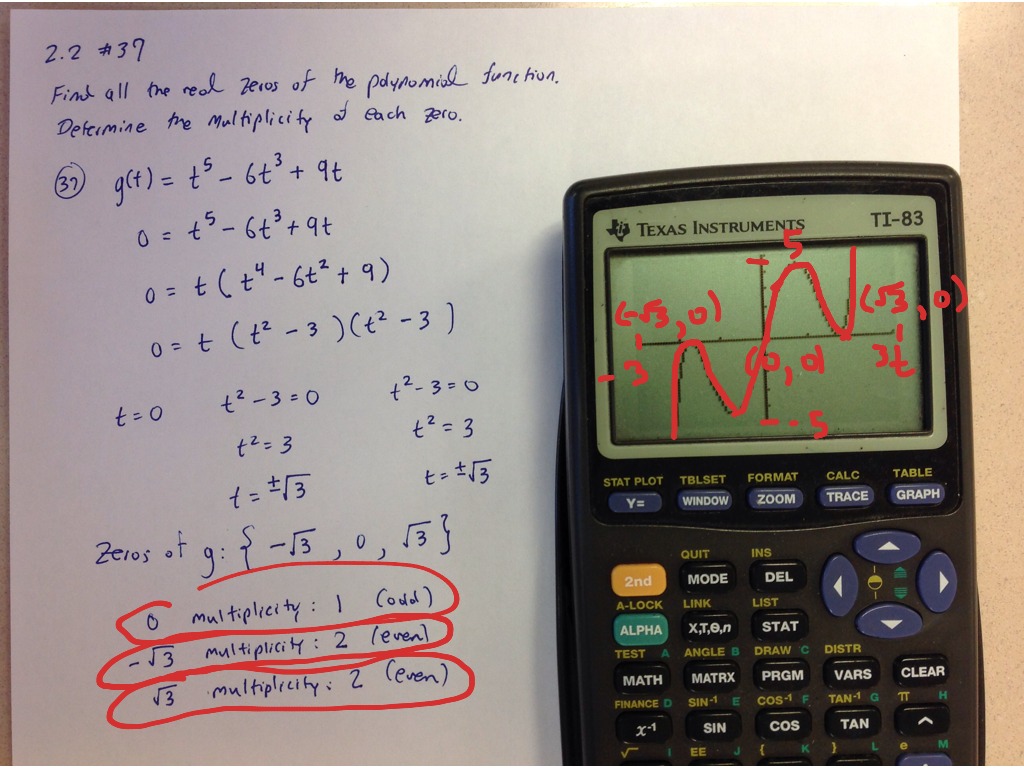 2.2 #37
Find all the real zeros of the polynomial function.
Determine the multiplicity of each zero.
37 g(t) = t⁵ - 6t³ + 9t
0 = t⁵ - 6t³ + 9t
0 = t ( t⁴ - 6t² + 9 )
0 = t ( t² - 3 )( t² - 3 )
t = 0 t² - 3 = 0 t² - 3 = 0
t² = 3 t² = 3
t = ±√3 t = ±√3
Zeros of g: { -√3 , 0 , √3 }
0 multiplicity: 1 (odd)
-√3 multiplicity: 2 (even)
√3 multiplicity: 2 (even)
TEXAS INSTRUMENTS TI-83
5
(-√3, 0) (√3, 0)
-3 (0, 0) 3 t
-5
STAT PLOT TBLSET FORMAT CALC TABLE
Y= WINDOW ZOOM TRACE GRAPH
QUIT INS
2nd MODE DEL
A-LOCK LINK LIST
ALPHA X,T,Θ,n STAT
TEST A ANGLE B DRAW C DISTR
MATH MATRX PRGM VARS CLEAR
FINANCE D SIN⁻¹ E COS⁻¹ F TAN⁻¹ G π H
x⁻¹ SIN COS TAN ^
√ I EE J { K } L e M